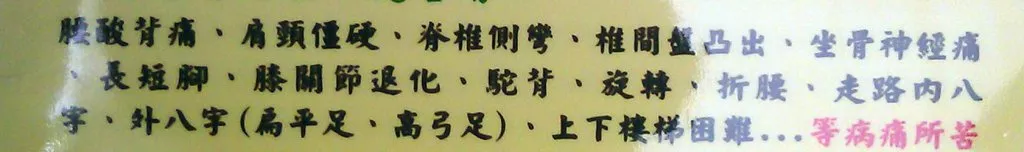 腰酸背痛、肩頸僵硬、脊椎側彎、椎間盤凸出、坐骨神經痛
、長短腳、膝關節退化、駝背、旋轉、折腰、走路內八
字、外八字(扁平足、高弓足)、上下樓梯困難...等病痛所苦